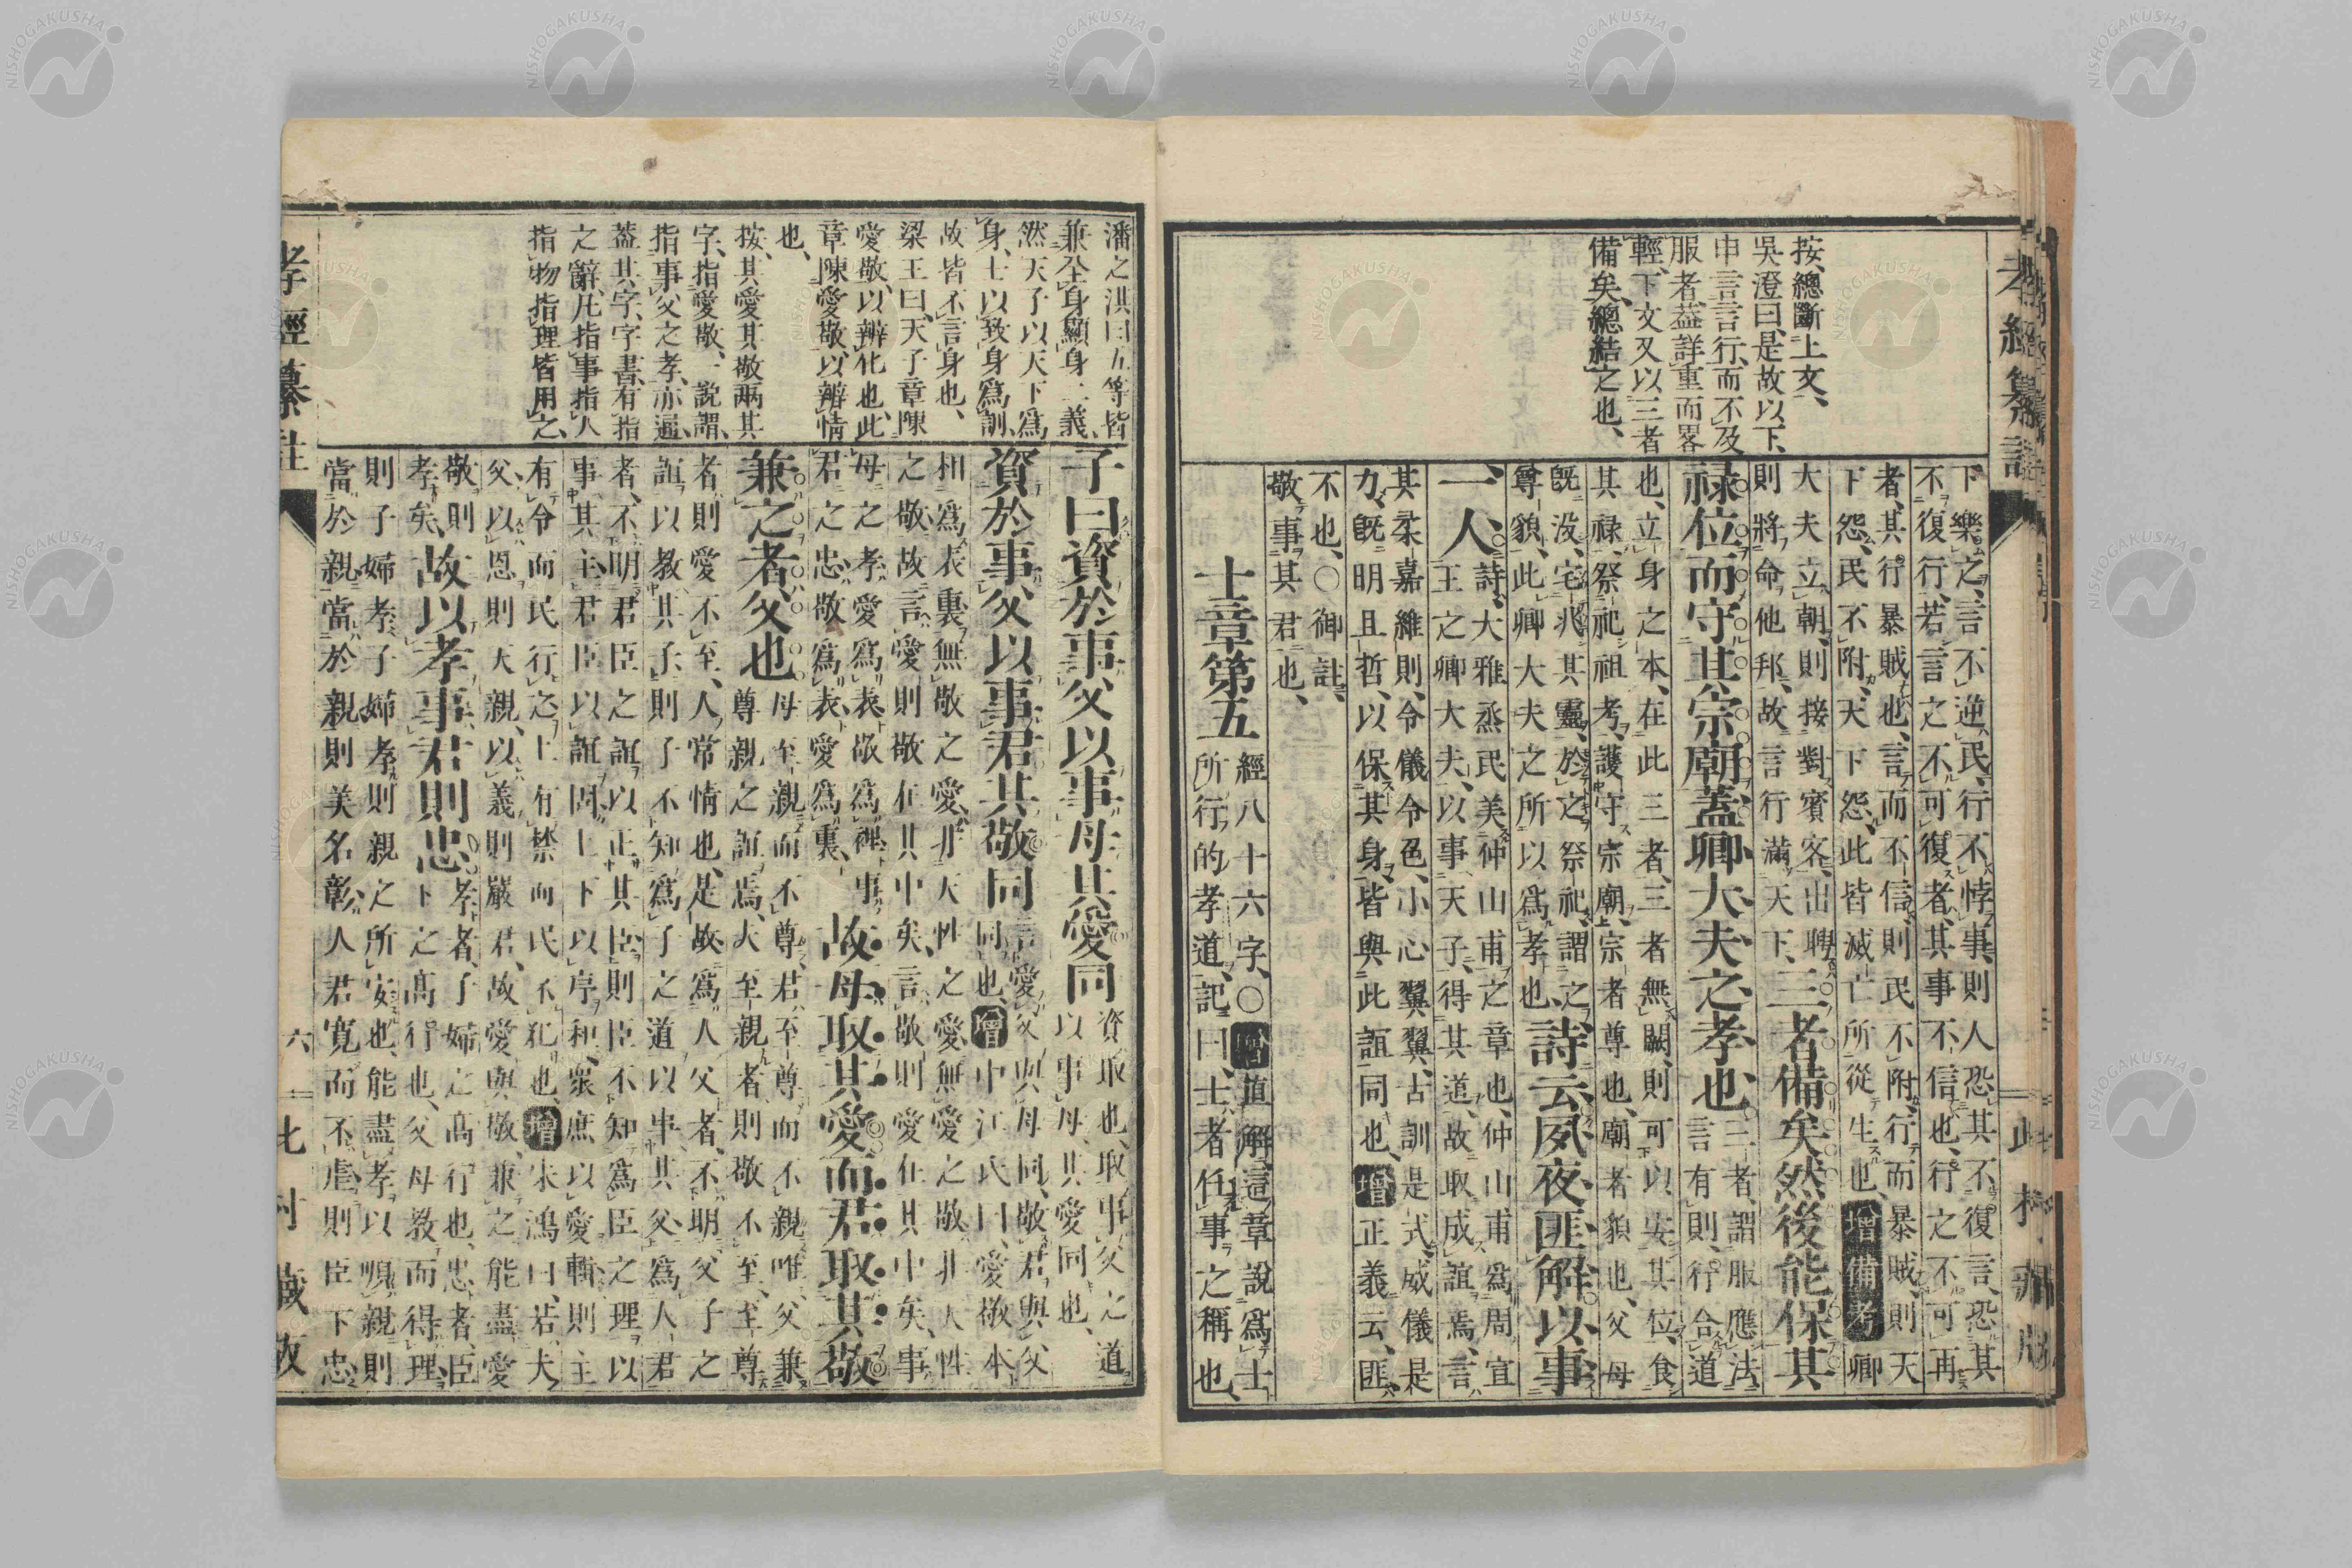 孝經纂註
按、總斷上文、
吳澄曰、是故以下、
申言言行、而不及
服者、蓋詳重而畧
輕、下文又以三者
備矣、總結之也、
下樂之、言不逆民、行不悖事、則人恐其不復言、恐其
不復行、若言之不可復者、其事不信也、行之不可再
者、其行暴賊也、言而不信、則民不附、行而暴賊、則天
下怨、民不附、天下怨、此皆滅亡所從生也、增備考卿
大夫立朝、則接對賓客、出聘
則將命他邦、故言行滿天下、
三者備矣然後能保其
祿位而守其宗廟、蓋卿大夫之孝也、
三者、謂服應法、
言有則、行合道
也、立身之本、在此三者、三者無闕、則可以安其位、食
其祿、祭祀祖考、護守宗廟、宗者尊也、廟者貌也、父母
既沒、宅兆其靈、於之祭祀、謂之
尊貌、此卿大夫之所以爲孝也、
詩云夙夜匪解以事
一人、
詩、大雅烝民、美仲山甫之章也、仲山甫爲周宣
王之卿大夫、以事天子、得其道、故取成誼焉、言
其柔嘉維則、令儀令色、小心翼翼、古訓是式、威儀是
力、既明且哲、以保其身、皆與此誼同也、增正義云、匪、
不也、〇御註、
敬事其君也、
士章第五
經八十六字、〇增直解、這章說爲士
所行的孝道、記曰、士者任事之稱也、
潘之淇曰、五等皆
兼全身顯身二義、
然天子以天下爲
身、士以致身爲訓、
故皆不言身也、
梁王曰、天子章陳
愛敬、以辨化也、此
章陳愛敬、以辨情
也、
按、其愛其敬兩其
字、指愛敬、一說謂、
指事父之孝、亦通、
蓋其字、字書、有指
之辭、凡指事指人
指物指理皆用之、
子曰資於事父以事母其愛同
資取也、取事父之道、
以事母、其愛同也、
資於事父以事君其敬同
言愛父與母同、敬君與父
同也、增中江氏曰、愛敬本
相爲表裏、無敬之愛、非天性之愛、無愛之敬、非天性
之敬、故言愛則敬在其中矣、言敬則愛在其中矣、事
母之孝、愛爲表敬爲裡、事
君之忠、敬爲表、愛爲裏、
故母取其愛而君取其敬
兼之者父也
母至親而不尊、君至尊而不親、唯父兼
尊親之誼焉、夫至親者、則敬不至、至尊
者、則愛不至、人常情也、是故爲人父者、不明父子之
誼、以教其子、則子不知爲子之道、以事其父、爲人君
者、不明君臣之誼、以正其臣、則臣不知爲臣之理、以
事其主、君臣以誼固、上下以序和、衆庶以愛輯、則主
有令而民行之、上有禁而民不犯也、增朱鴻曰、若夫
父、以恩則天親、以義則嚴君、故愛與敬、兼之能盡、愛
敬、則
孝矣、
故以孝事君則忠
孝者、子婦之高行也、忠者、臣
下之高行也、父母教而得理、
則子婦孝、子婦孝、則親之所安也、能盡孝以順親、則
當於親、當於親、則美名彰、人君寬而不虐、則臣下忠、
孝經纂註
六